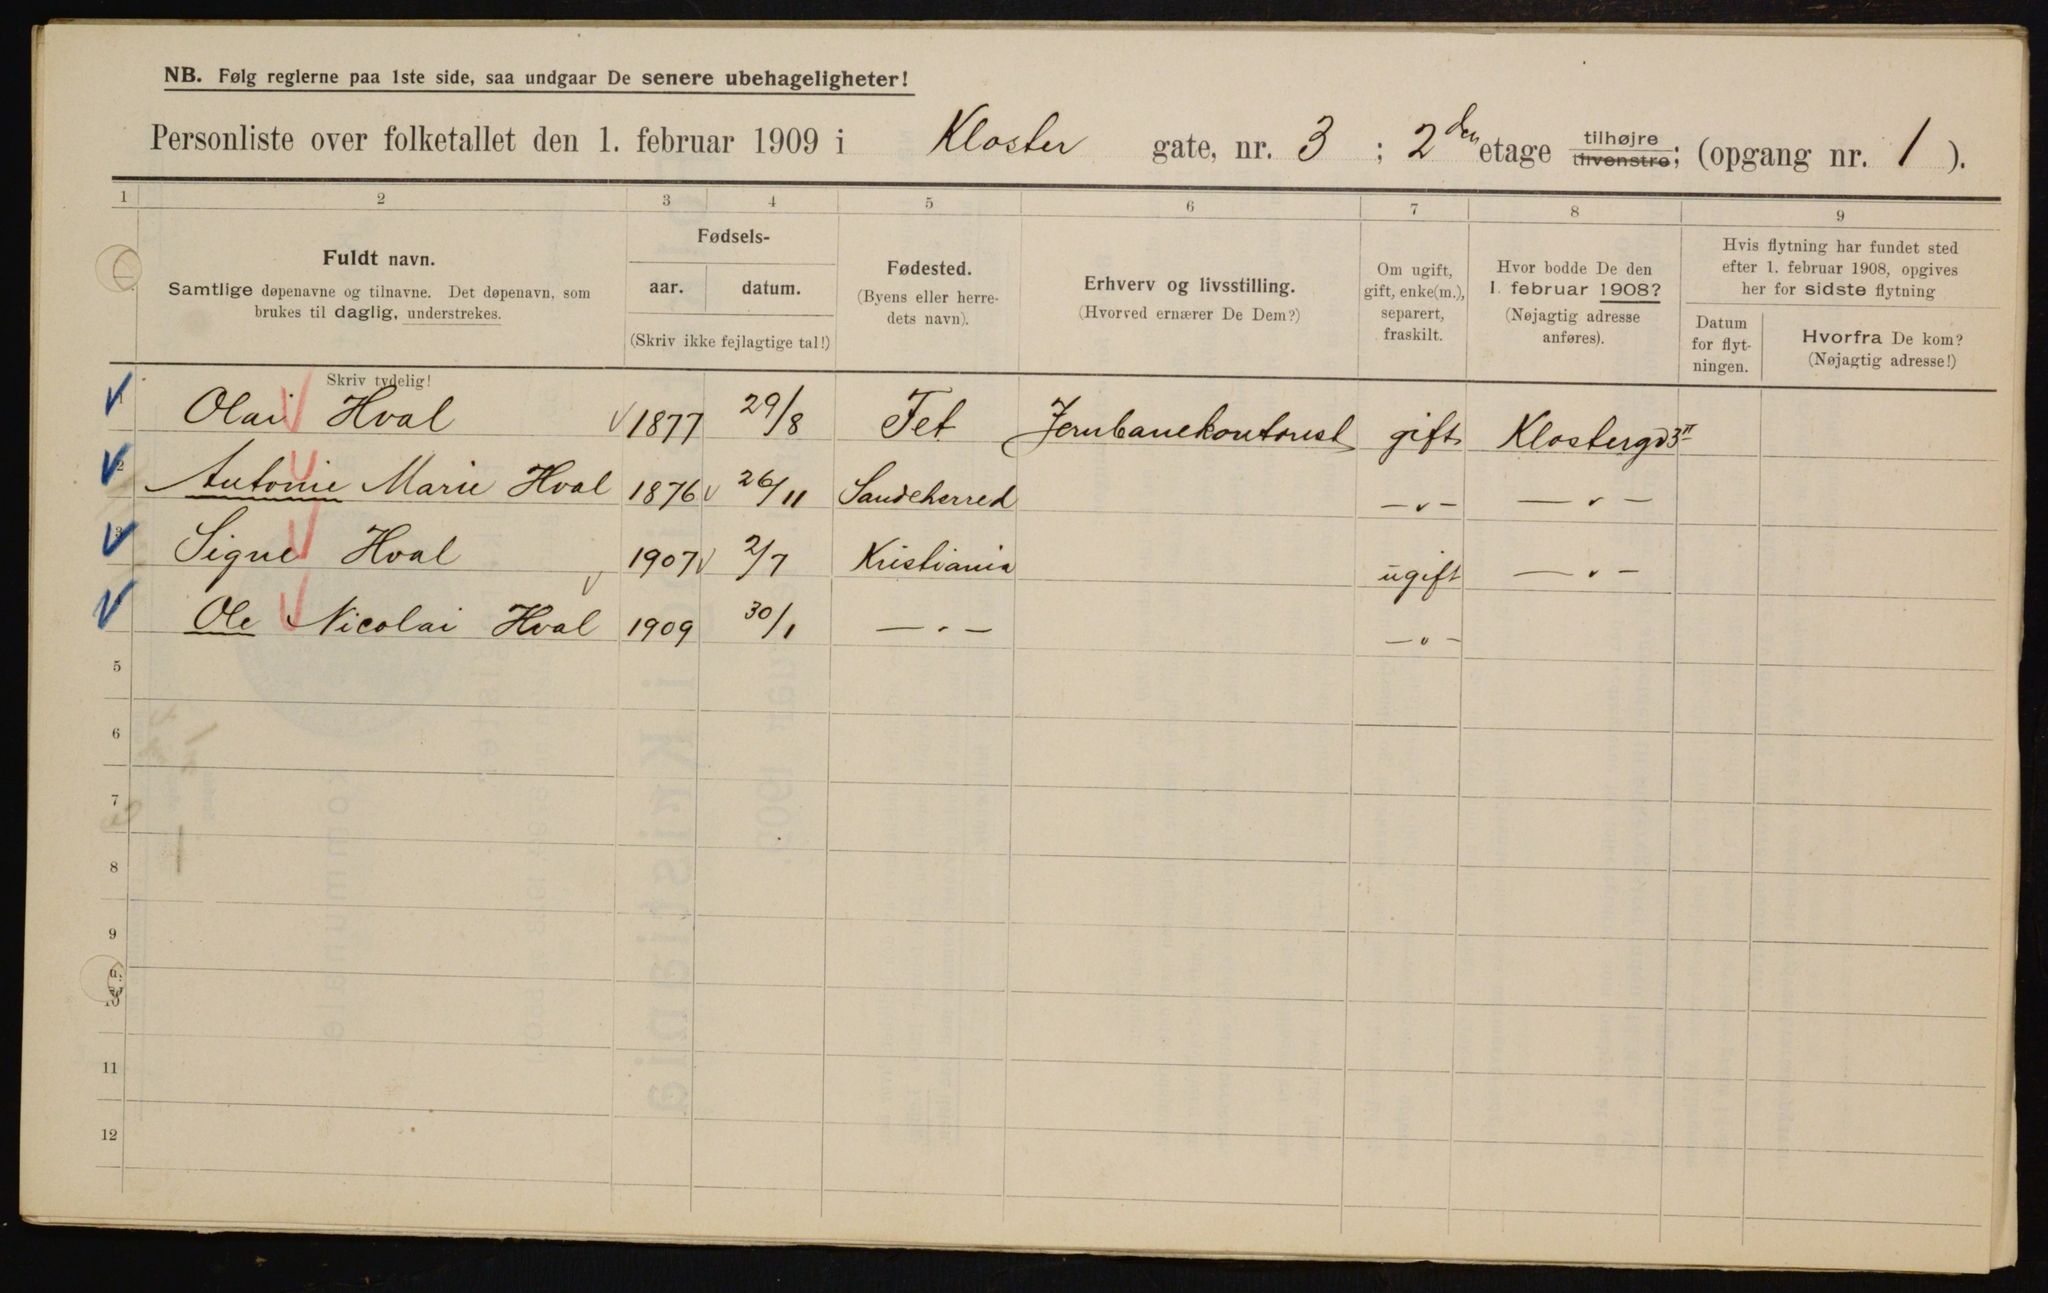 NB. Følg reglerne paa 1ste side, saa undgaar De senere ubehageligheter!
Personliste over folketallet den 1. februar 1909 i Kloster gate, nr. 3 ; 2den etage tilhøjre tilvenstre; (opgang nr. 1 ).
1 2 3 4 5 6 7 8 9
Fuldt navn.
Samtlige døpenavne og tilnavne. Det døpenavn, som
brukes til daglig, understrekes.
Skriv tydelig!
Fødsels-
aar. datum.
(Skriv ikke fejlagtige tal!)
Fødested.
(Byens eller herre-
dets navn).
Erhverv og livsstilling.
(Hvorved ernærer De Dem?)
Om ugift,
gift, enke(m.),
separert,
fraskilt.
Hvor bodde De den
1. februar 1908?
(Nøjagtig adresse
anføres).
Hvis flytning har fundet sted
efter 1. februar 1908, opgives
her for sidste flytning
Datum
for flyt-
ningen.
Hvorfra De kom?
(Nøjagtig adresse!)
1 Olai Hval 1877 29/8 Fet Jernbanekontorist gift Klostergd 3 II
2 Antonie Marie Hval 1876 26/11 Sandeherred — „ — — „ —
3 Signe Hval 1907 2/7 Kristiania ugift — „ —
Ole Nicolai Hval 1909 30/1 — „ — — „ —
5
6
7
8
9
10
11
12